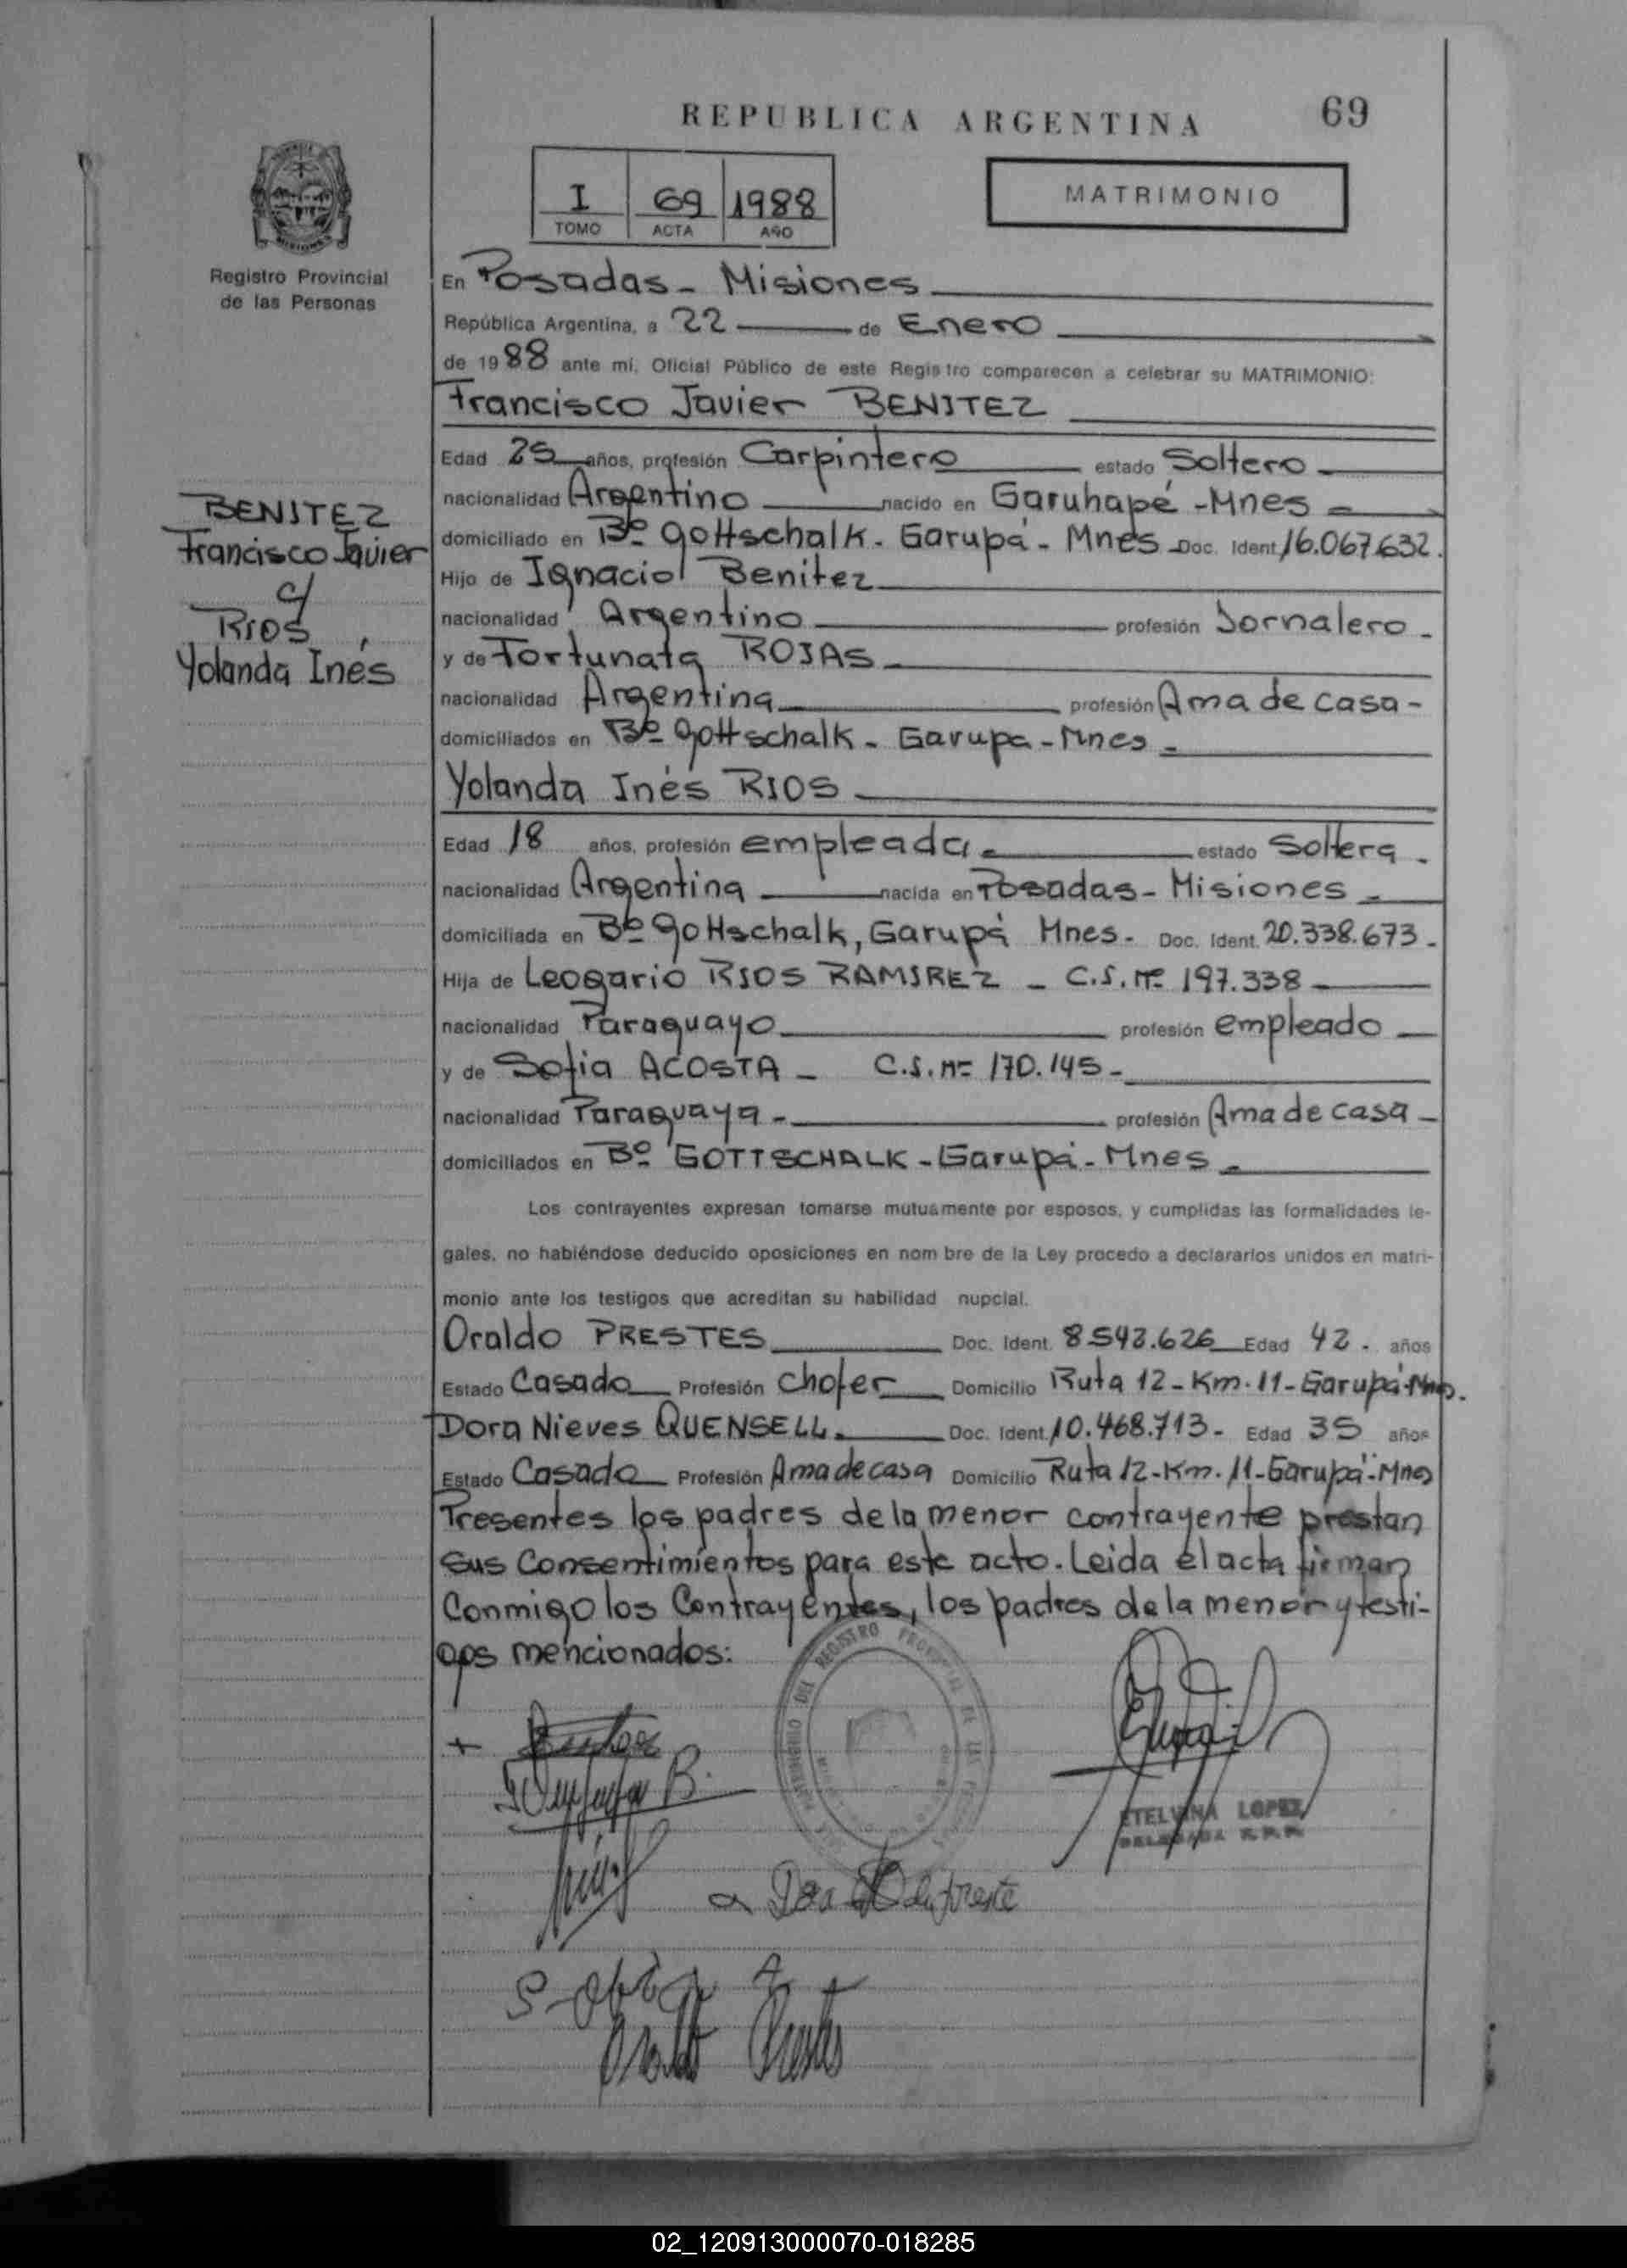 REPUBLICA ARGENTINA
69
I 69 1988
TOMO ACTA AÑO
MATRIMONIO
Registro Provincial
de las Personas
BENITEZ
Francisco Javier
c/
RIOS
Yolanda Inés
En Posadas - Misiones
República Argentina, a 22 de Enero
de 1988 ante mi, Oficial Público de este Registro comparecen a celebrar su MATRIMONIO:
Francisco Javier BENITEZ
Edad 25 años, profesión Carpintero estado Soltero
nacionalidad Argentino nacido en Garuhapé - Mnes
domiciliado en Bº Gottschalk - Garupá - Mnes Doc. Ident. 16.067.632.
Hijo de Ignacio Benitez
nacionalidad Argentino profesión Jornalero
y de Fortunata ROJAS
nacionalidad Argentina profesión Ama de casa
domiciliados en Bº Gottschalk - Garupa - Mnes
Yolanda Inés RIOS
Edad 18 años, profesión empleada estado Soltera
nacionalidad Argentina nacida en Posadas - Misiones
domiciliada en Bº Gottschalk, Garupá Mnes - Doc. Ident. 20.338.673
Hija de Leogario RIOS RAMIREZ - C.I. Nº 197.338
nacionalidad Paraguayo profesión empleado
y de Sofia ACOSTA - C.I. Nº 170.145
nacionalidad Paraguaya profesión Ama de casa
domiciliados en Bº GOTTSCHALK - Garupá - Mnes
Los contrayentes expresan tomarse mutuamente por esposos, y cumplidas las formalidades le-
gales, no habiéndose deducido oposiciones en nom bre de la Ley procedo a declararlos unidos en matri-
monio ante los testigos que acreditan su habilidad nupcial.
Oraldo PRESTES Doc. Ident. 8.542.626 Edad 42 años
Estado Casado Profesión Chofer Domicilio Ruta 12 - Km. 11 - Garupá - Mnes.
Dora Nieves QUENSELL Doc. Ident. 10.468.713 - Edad 35 años
Estado Casada Profesión Ama de casa Domicilio Ruta 12 - Km. 11 - Garupá - Mnes
Presentes los padres de la menor contrayente prestan
sus Consentimientos para este acto. Leida el acta firman
Conmigo los Contrayentes, los padres de la menor y testi-
gos mencionados:
ETELVINA LOPEZ
DELEGADA R.P.P.
02_120913000070-018285